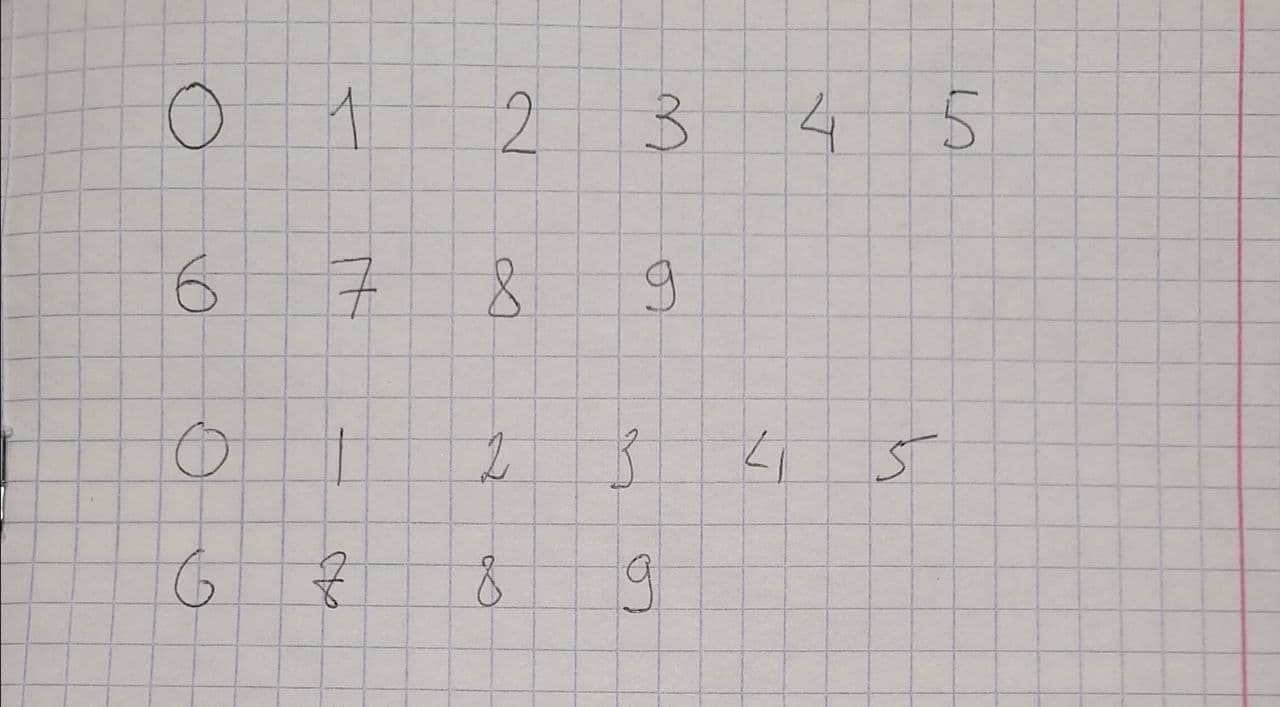 0 1 2 3 4 5
6 7 8 9
0 1 2 3 4 5
6 7 8 9